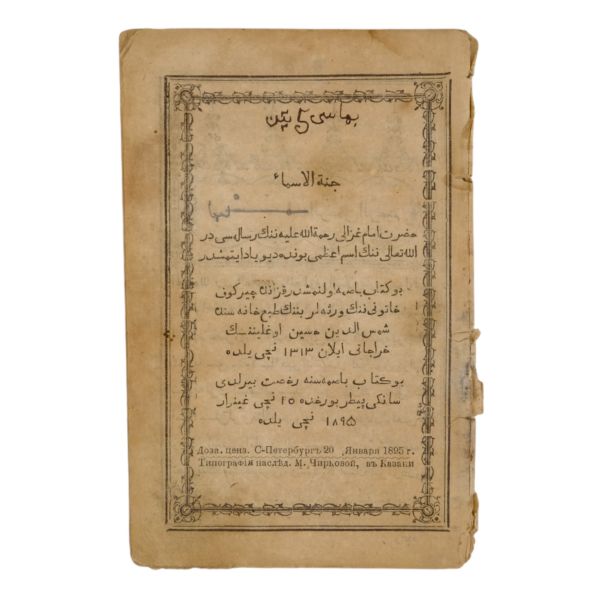 بهاسی 5 تین
جنة الاسماء
حضرت امام غزالی رحمة الله علیه ننك رساله سی در
الله تعالی ننك اسم اعظمی بونده دیو یاد ایتمشدر
بو كتاب باصمه اولنمشدر قزانده چیركوف
خاتونی ننك ورثه لریننك طبع خانه سنده
شمس الدین حسین اوغلیننك
خراجاتی ایلان ۱۳۱۳ نچی یلده
بو كتاب باصمه سنه رخصت بیرلدی
سانكی پیطربورغده ۲۵ نچی غینوار
۱۸۹۵ نچی یلده
Дозв. ценз. С-Петербургъ 20 Января 1895 г.
Типографія наслѣд. М. Чирковой, въ Казани